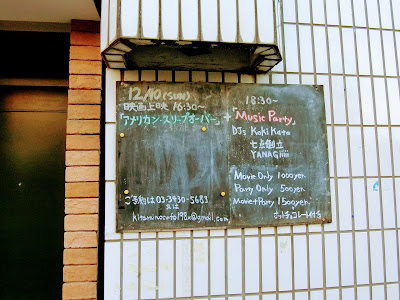 12/10(SUN)
映画上映 16:30~
「アメリカン・スリープオーバー」
+
18:30~
「Music Party」
DJs Koki Kato
YANAGiiii
Movie Only 1000yen
Party Only 500yen
Movie+Party 1500yen
ホットチョコレート付き
ご予約は03-3930-5683
又は
kitamimoonfo198x@gmail.com